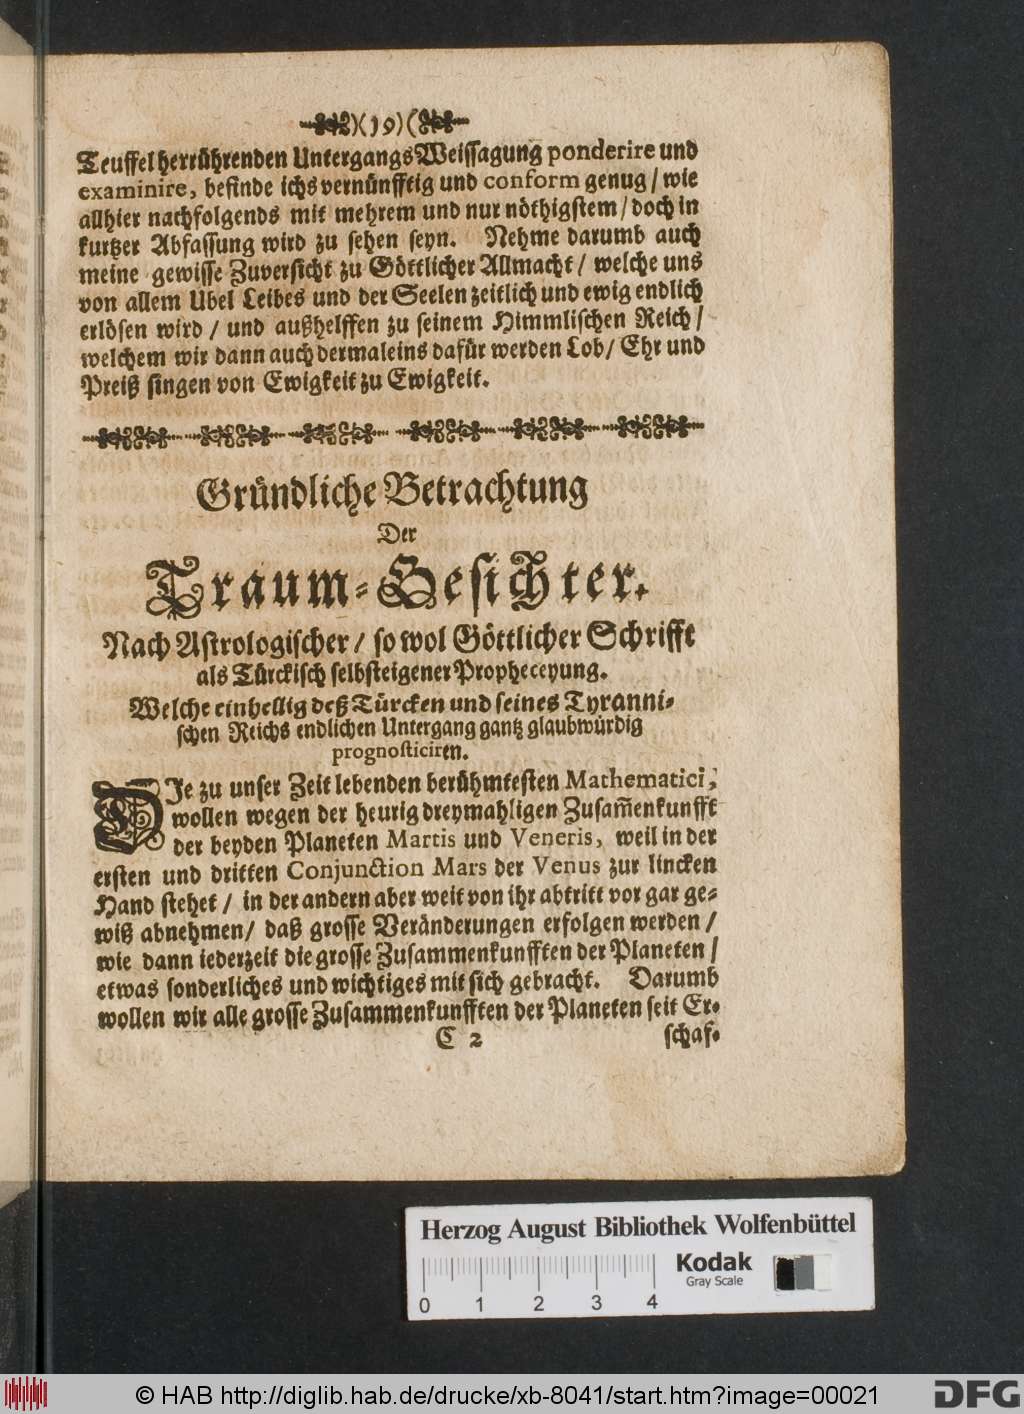 )(19)(
Teuffel herrührenden Untergangs Weissagung ponderire und
examinire, befinde ichs vernünfftig und conform genug / wie
allhier nachfolgends mit mehrem und nur nöthigstem / doch in
kurtzer Abfassung wird zu sehen seyn. Nehme darumb auch
meine gewisse Zuversicht zu Göttlicher Allmacht / welche uns
von allem Ubel Leibes und der Seelen zeitlich und ewig endlich
erlösen wird / und außhelffen zu seinem Himmlischen Reich /
welchem wir dann auch dermaleins dafür werden Lob / Ehr und
Preiß singen von Ewigkeit zu Ewigkeit.
Gründliche Betrachtung
Der
Traum-Gesichter.
Nach Astrologischer / so wol Göttlicher Schrifft
als Türckisch selbsteigener Propheceyung.
Welche einhellig deß Türcken und seines Tyranni-
schen Reichs endlichen Untergang gantz glaubwürdig
prognosticiren.
DIe zu unser Zeit lebenden berühmtesten Mathematici,
wollen wegen der heurig dreymahligen Zusam̃enkunfft
der beyden Planeten Martis und Veneris, weil in der
ersten und dritten Conjunction Mars der Venus zur lincken
Hand stehet / in der andern aber weit von ihr abtritt vor gar ge-
wiß abnehmen / daß grosse Veränderungen erfolgen werden /
wie dann iederzeit die grosse Zusammenkunfften der Planeten /
etwas sonderliches und wichtiges mit sich gebracht. Darumb
wollen wir alle grosse Zusammenkunfften der Planeten seit Er-
C 2 schaf-
Herzog August Bibliothek Wolfenbüttel
Kodak
Gray Scale
0 1 2 3 4
© HAB http://diglib.hab.de/drucke/xb-8041/start.htm?image=00021
DFG